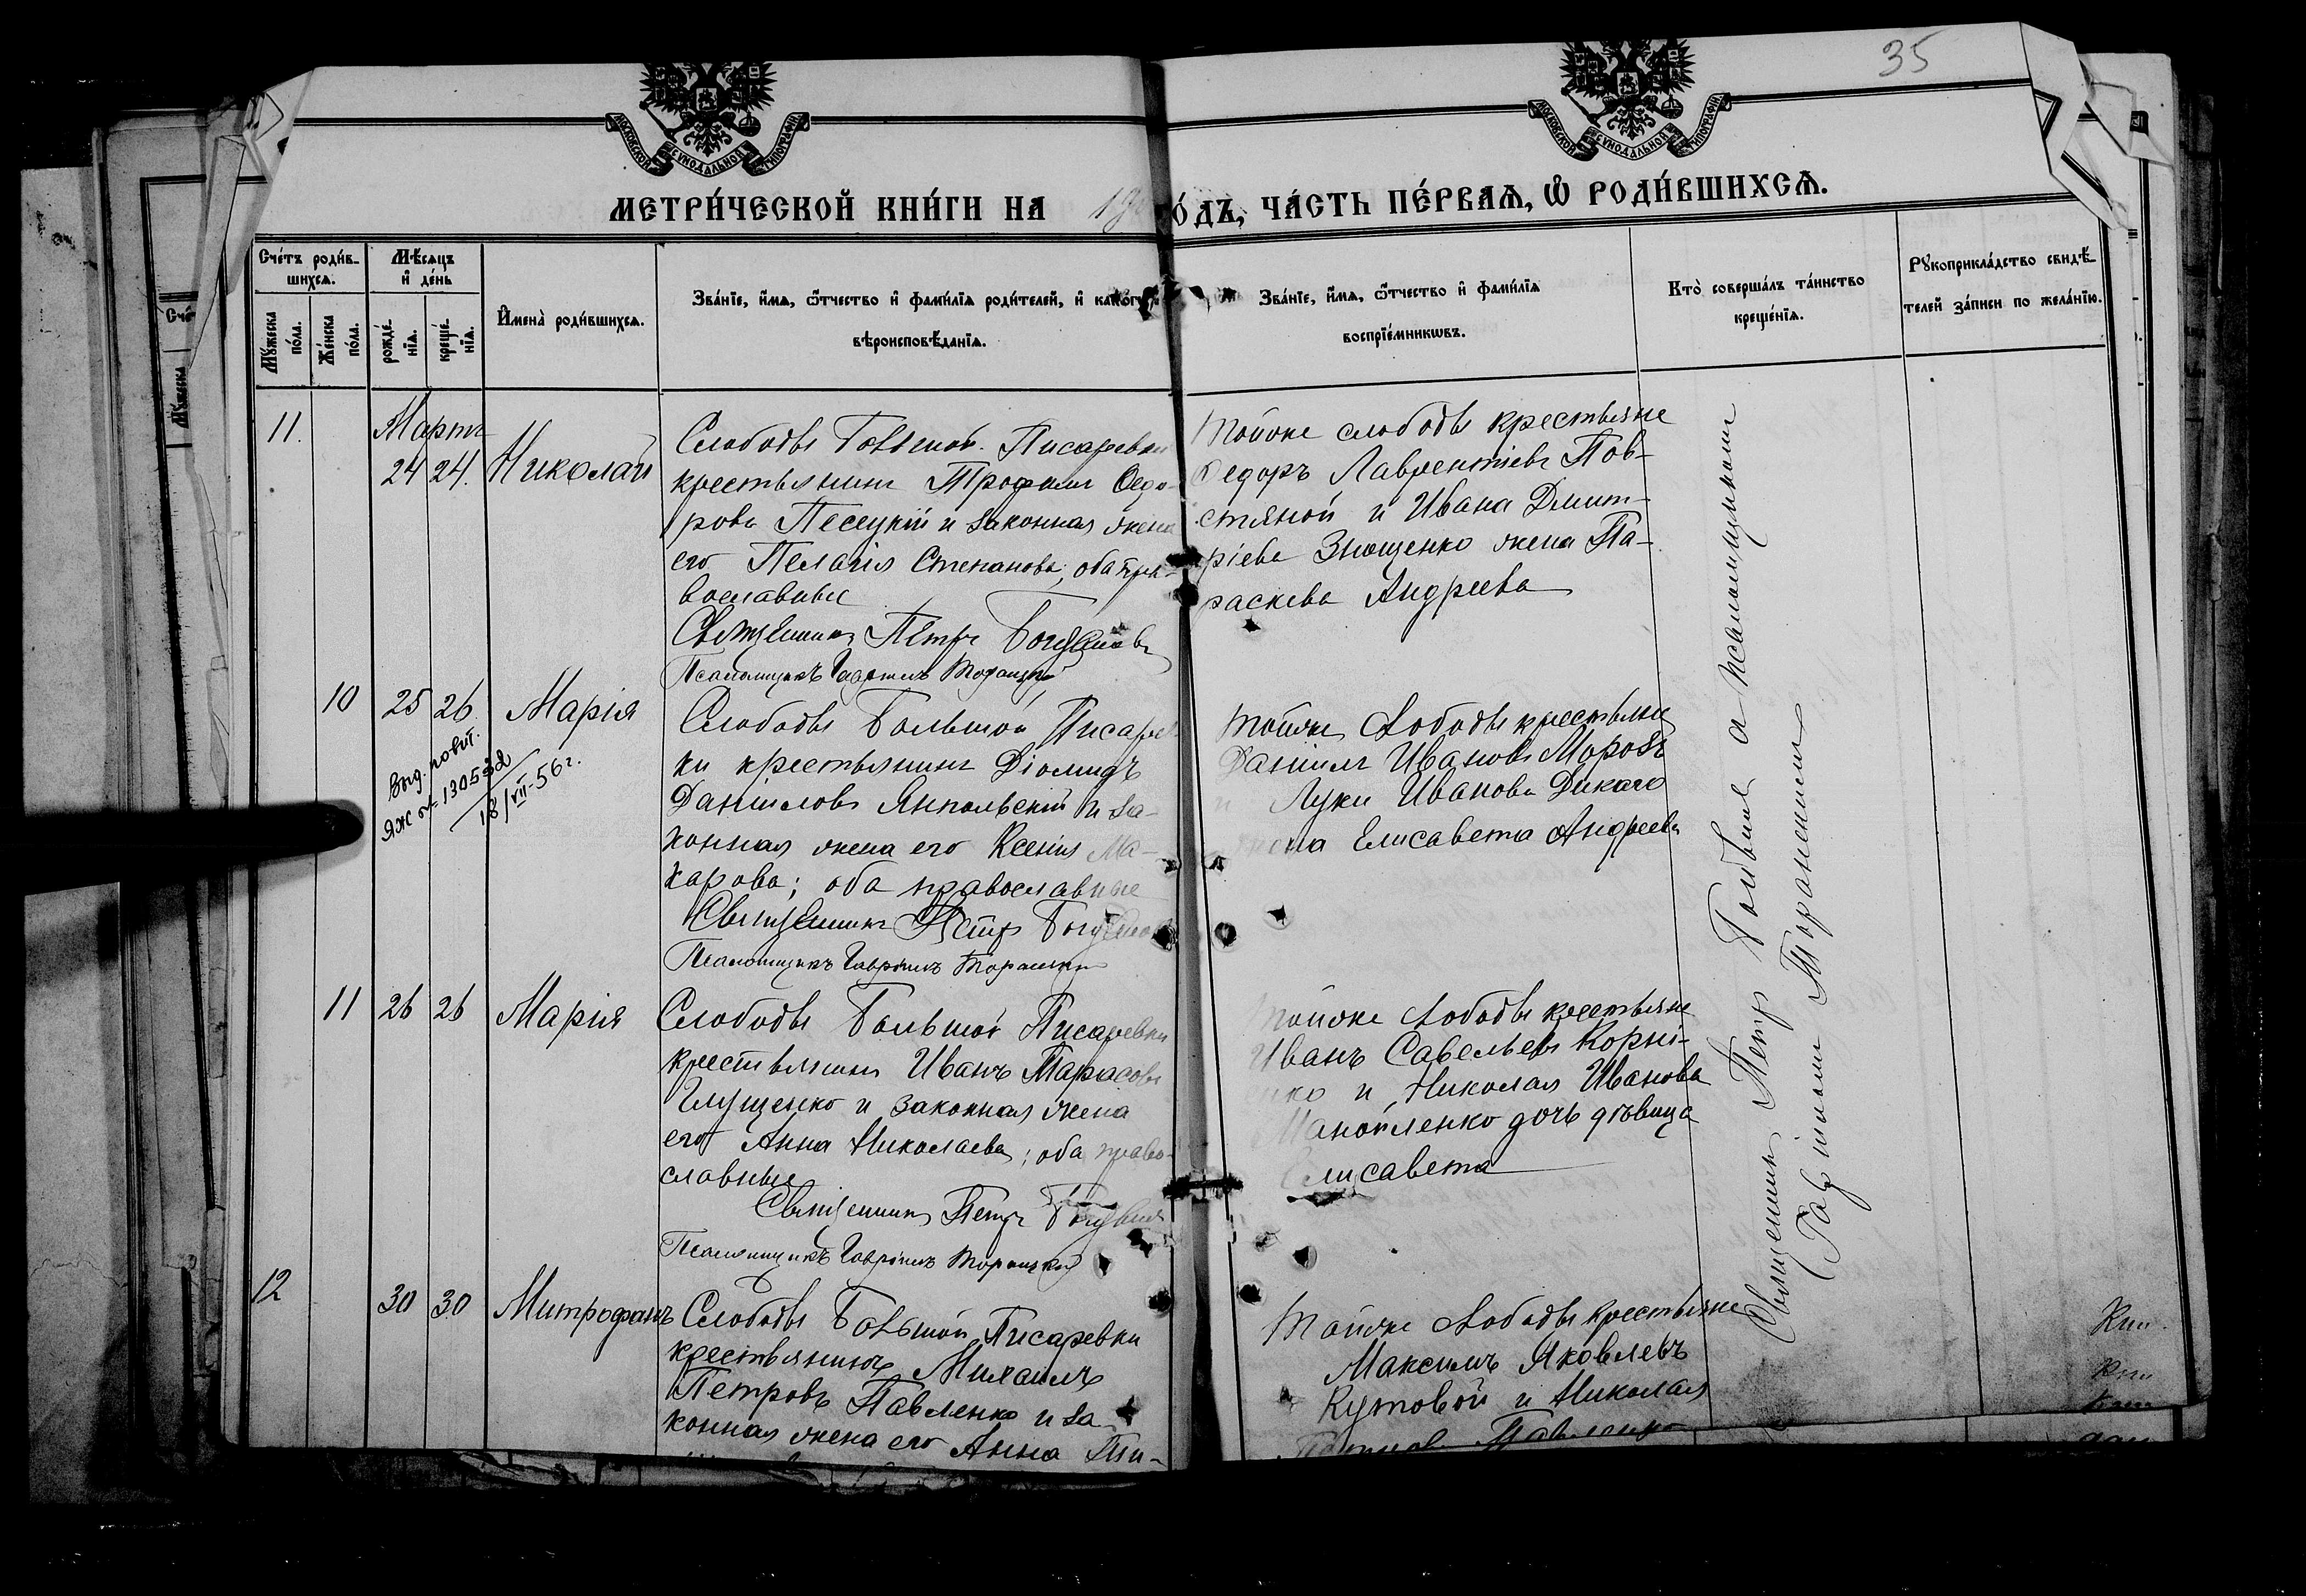 35
МОСКОВСКОЙ СѴНОДАЛЬНОЙ ТИПОГРАФІИ
МОСКОВСКОЙ СѴНОДАЛЬНОЙ ТИПОГРАФІИ
МЕТРИ́ЧЕСКОЙ КНИ́ГИ НА 19
О́ДЪ, ЧА́СТЬ ПЕ́РВАѦ, Ѽ РОДИ́ВШИХСѦ.
Сче́тъ роди́в-
шихсѧ.
Му́жеска по́ла.
Же́нска по́ла.
Мѣ́сѧцъ
и҆ де́нь
рожде́-
нїѧ.
креще́-
нїѧ.
И҆мена̀ роди́вшихсѧ.
Зва́нїе, и҆́мѧ, ѻ҆́тчество и҆ фамы́лїѧ роди́телей, и҆ како́гѡ
вѣроисповѣ́данїѧ.
Зва́нїе, и҆́мѧ, ѻ҆́тчество и҆ фами́лїѧ
воспрїе́мникѡвъ.
Кто̀ соверша́лъ та́инство
креще́нїѧ.
Рꙋкоприкла́дство свидѣ́-
телей за́писи по жела́нїю.
11.
Мартъ
24 24.
Николай
Слободы Большой Писаревки
крестьянинъ Трофимъ Ѳедо-
ровъ Песецкій и законная жена
его Пелагія Степанова; оба пра-
вославные
Священникъ Петръ
Псаломщикъ Гавріилъ
Тойже слободы крестьяне
Ѳедоръ Лаврентіевъ Пов-
стяной и Ивана Дмит-
ріева жена Па-
раскева Андреева
10
25 26.
Марія
Выд. повт.
ЯЖ № 130532
18/VII-56г.
Слободы Большой Писарев
ки крестьянинъ Діомидъ
Даніиловъ Янпольскій и за-
конная жена его Ксенія Ма-
карова; оба православные
Священникъ Петръ
Псаломщикъ Гавріилъ
Тойже слободы крестьяне
Даніилъ Ивановъ Морозъ
и Луки Иванова Дикаго
жена Елисавета Андреева
11
26 26
Марія
Слободы Большой Писаревки
крестьянинъ Иванъ Тарасовъ
Глущенко и законная жена
его Анна Николаева; оба право-
славные
Священникъ Петръ
Псаломщикъ Гавріилъ
Тойже слободы крестьяне
Иванъ Савельевъ Корні-
енко и Николая Иванова
Манойленко дочь дѣвица
Елисавета
12
30 30
Митрофанъ
Слободы Большой Писаревки
крестьянинъ Михаилъ
Петровъ Павленко и за
конная жена его Анна Ти-
Тойже слободы крестьяне
Максимъ Яковлевъ
Кутовой и Николая
Павленко
Священникъ Петръ и псаломщикъ
Гавріилъ